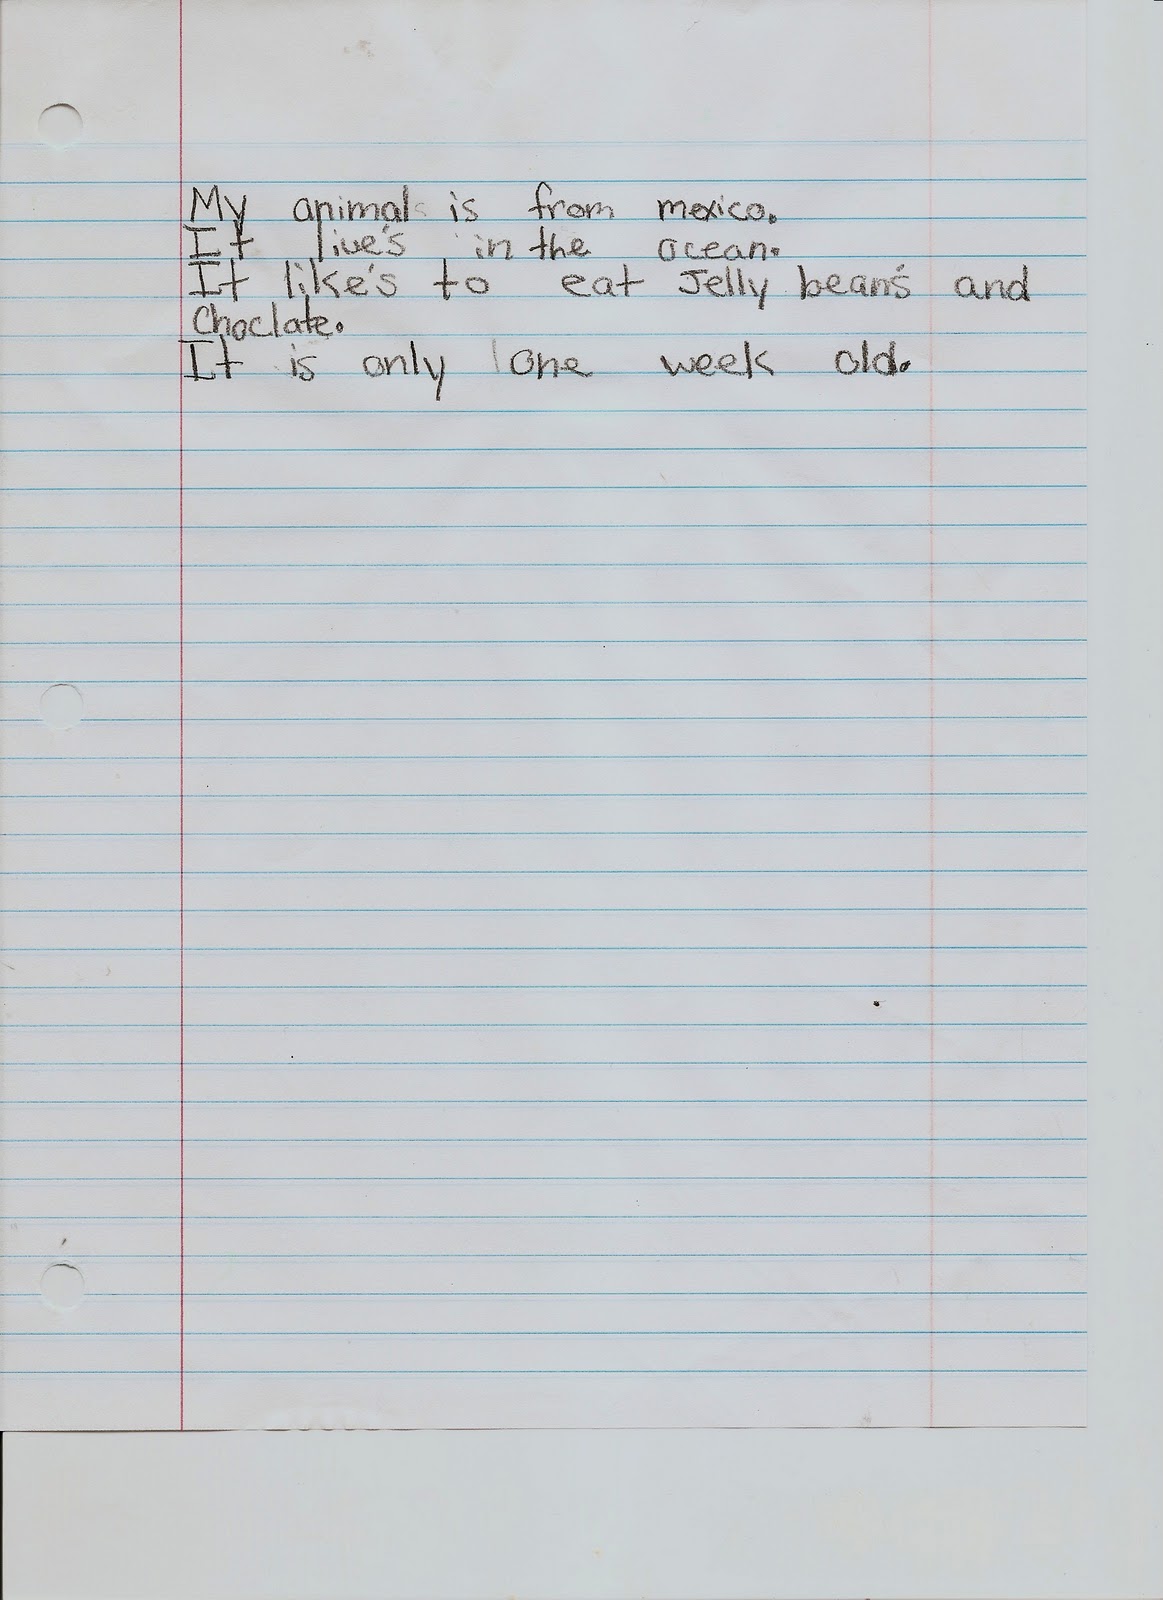 My animal is from mexico.
It live's in the ocean.
It like's to eat Jelly bean's and
Choclate.
It is only one week old.